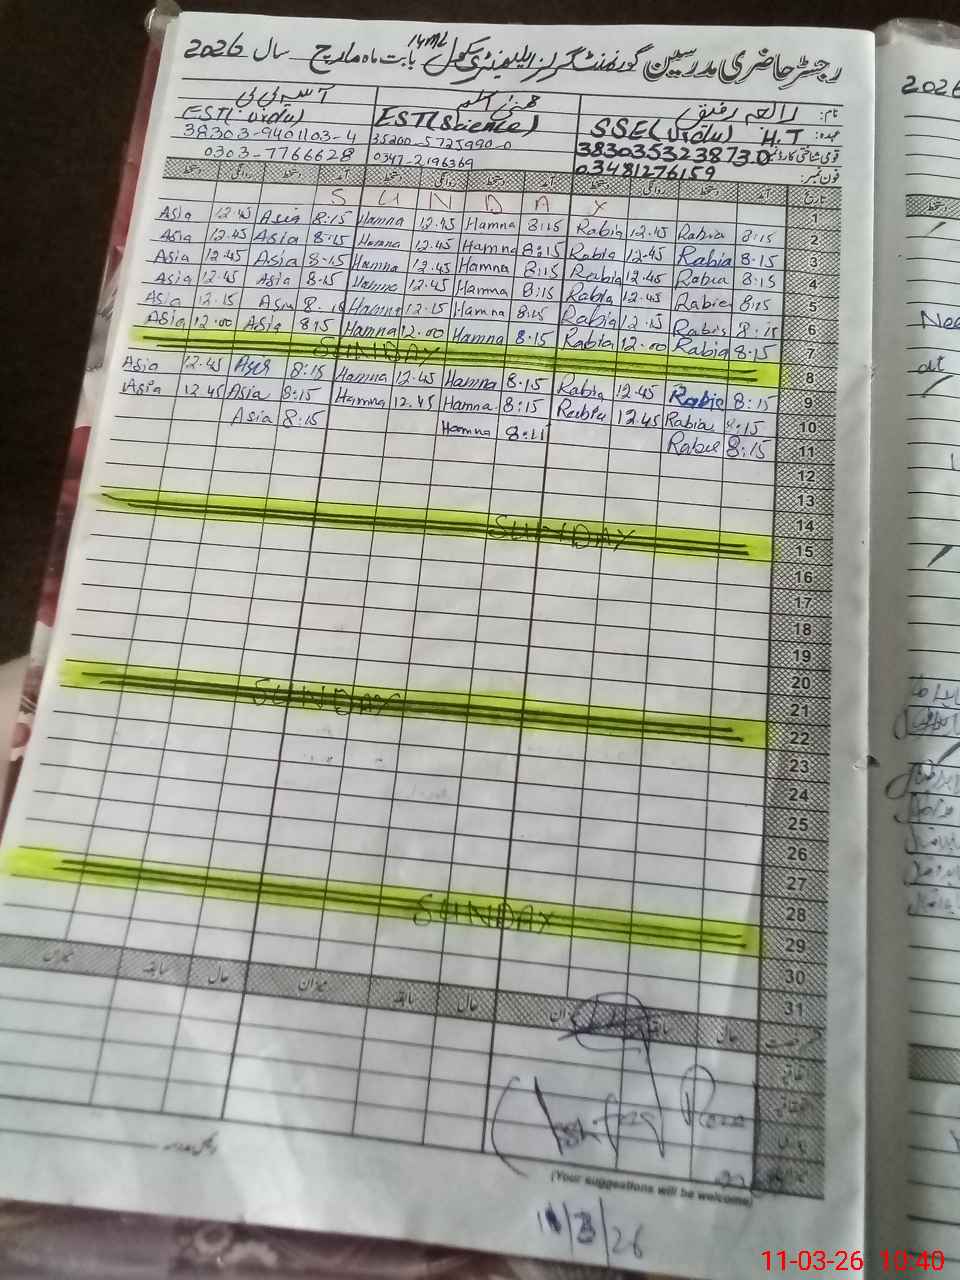 رجسٹر حاضری مدرسین گورنمنٹ گرلز ایلیمنٹری سکول 14ML بابت ماہ مارچ سال 2026
نام: رابعہ رفیق
آسیہ بی بی
عہدہ: SSE(Urdu) H.T EST(Science) EST(Urdu)
قومی شناختی کارڈ نمبر 3830353238730 35200-5725990-0 38303-9401103-4
فون نمبر: 03481276159 0347-2196369 0303-7766628
تاریخ آمد دستخط روانگی دستخط آمد دستخط روانگی دستخط آمد دستخط روانگی دستخط
1 SUNDAY
2 8:15 Rabia 12.45 Rabia 8:15 Hamna 12.45 Hamna 8:15 Asia 12.45 Asia
3 8.15 Rabia 12.45 Rabia 8:15 Hamna 12.45 Hamna 8.15 Asia 12.45 Asia
4 8.15 Rabia 12.45 Rabia 8:15 Hamna 12.45 Hamna 8.15 Asia 12.45 Asia
5 8:15 Rabia 12.45 Rabia 8:15 Hamna 12.45 Hamna 8.15 Asia 12.45 Asia
6 8:15 Rabia 12.15 Rabia 8:15 Hamna 12.15 Hamna Asia 12.15 Asia
7 8.15 Rabia 12.00 Rabia 8.15 Hamna 12.00 Hamna 8.15 Asia 12.00 Asia
8 SUNDAY
9 8:15 Rabia 12.45 Rabia 8.15 Hamna 12.45 Hamna 8:15 12.45 Asia
10 8:15 Rabia 12.45 Rabia 8:15 Hamna 12.45 Hamna 8:15 Asia 12.45 Asia
11 8:15 Rabia Hamna 8:15 Asia
12
13
14
15 SUNDAY
16
17
18
19
20
21
22 SUNDAY
23
24
25
26
27
28
29 SUNDAY
30
31
حال سابقہ میزان حال سابقہ میزان حال سابقہ میزان
(Your suggestions will be welcome)
11/3/26
2026
11-03-26 10:40